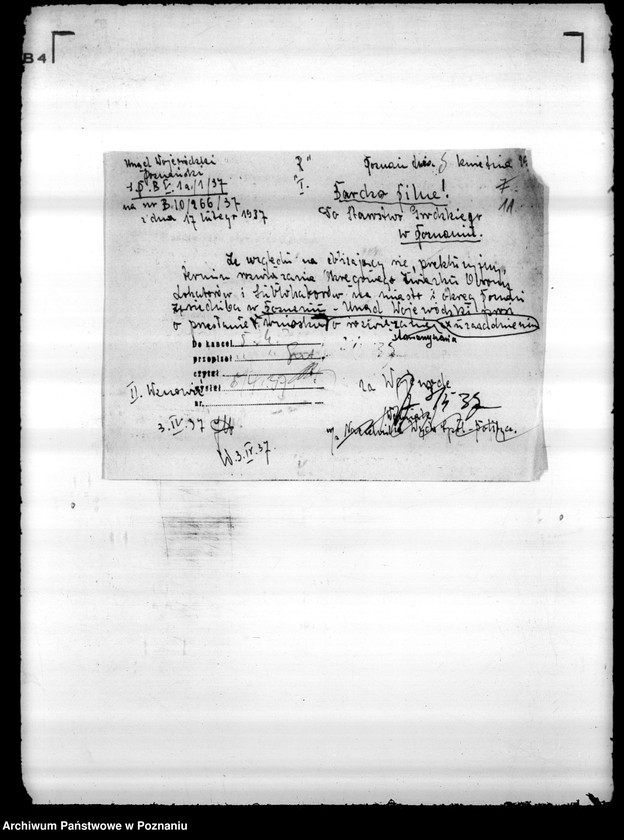 B4
Urząd Wojewódzki
Poznański
B.V.1a/1/37
na nr B.10/266/37
z dnia 17 lutego 1937
Poznań dnia 5 kwietnia
"I.
Bardzo Pilne!
Do Starostwa Grodzkiego
w Poznaniu.
11
Ze względu na zbliżający się, prekluzyjny
termin rozwiązania Okręgowego Związku Obrony
Lokatorów i Sublokatorów na miasto i okręg Poznań
z siedzibą w Poznaniu - Urząd Wojewódzki prosi
o przesłanie wniosku o rozwiązanie z uzasadnieniem
stowarzyszenia
Do kancel.
przepisał
czytał
wysłał
nr.
II. Wznowić
3.IV.37
W.3.IV.37
za Wojewodę
Archiwum Państwowe w Poznaniu